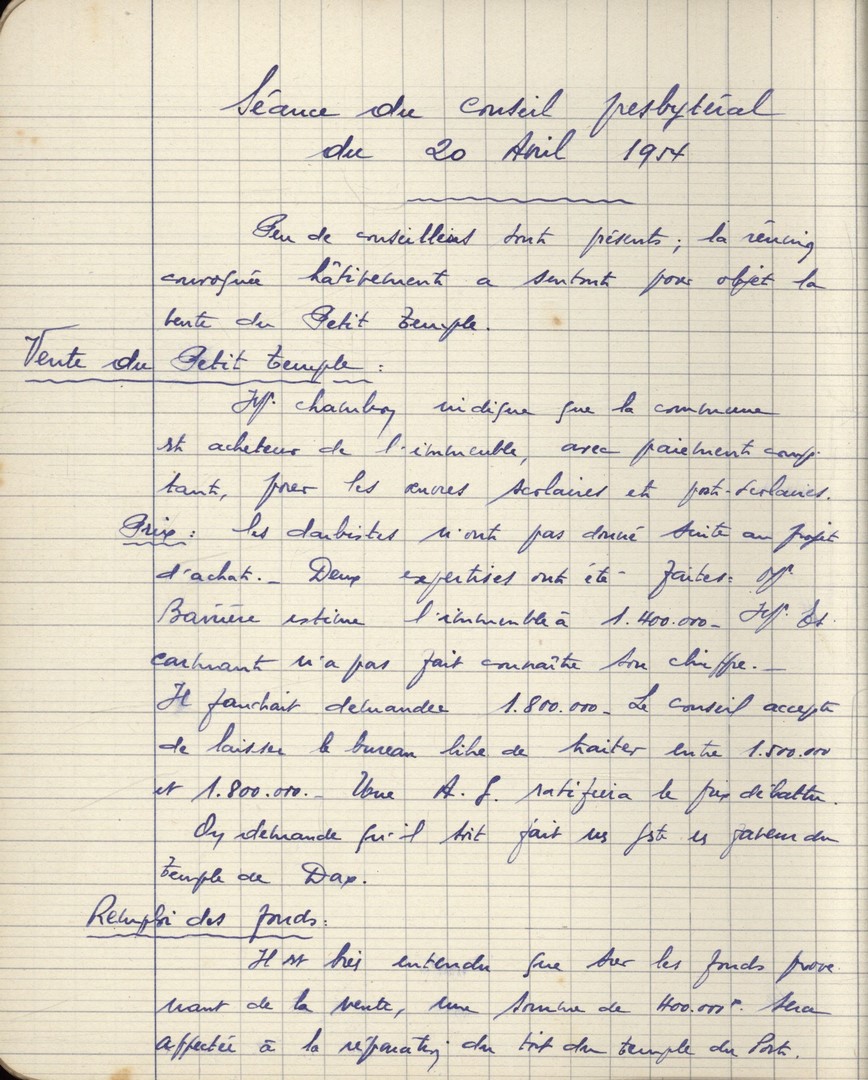 Séance du Conseil presbytéral
du 20 Avril 1954
Peu de conseillers sont présents ; la réunion
convoquée hâtivement a surtout pour objet la
vente du Petit Temple.
Vente du Petit Temple :
Mr. Chambon indique que la commune
est acheteur de l'immeuble, avec paiement comp-
tant, pour les œuvres scolaires et post-scolaires.
Prix : les darbistes n'ont pas donné suite au projet
d'achat. _ Deux expertises ont été faites : Mr
Barrière estime l'immeuble à 1.400.000 _ Mr
n'a pas fait connaître son chiffre. _
Il faudrait demander 1.800.000 _ Le Conseil accepte
de laisser le bureau libre de traiter entre 1.500.000
et 1.800.000. _ Une A. G. ratifiera le prix débattu.
On demande qu'il soit fait un geste en faveur du
Temple de Dax.
Remploi des fonds :
Il est bien entendu que sur les fonds prove
nant de la vente, une somme de 400.000 F. sera
affectée à la réparation du toit du temple du Port.